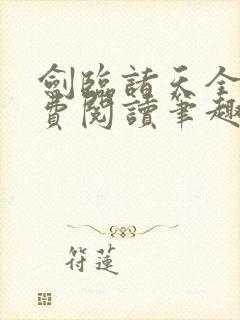 劍臨諸天全
費閱讀筆趣
符蓮